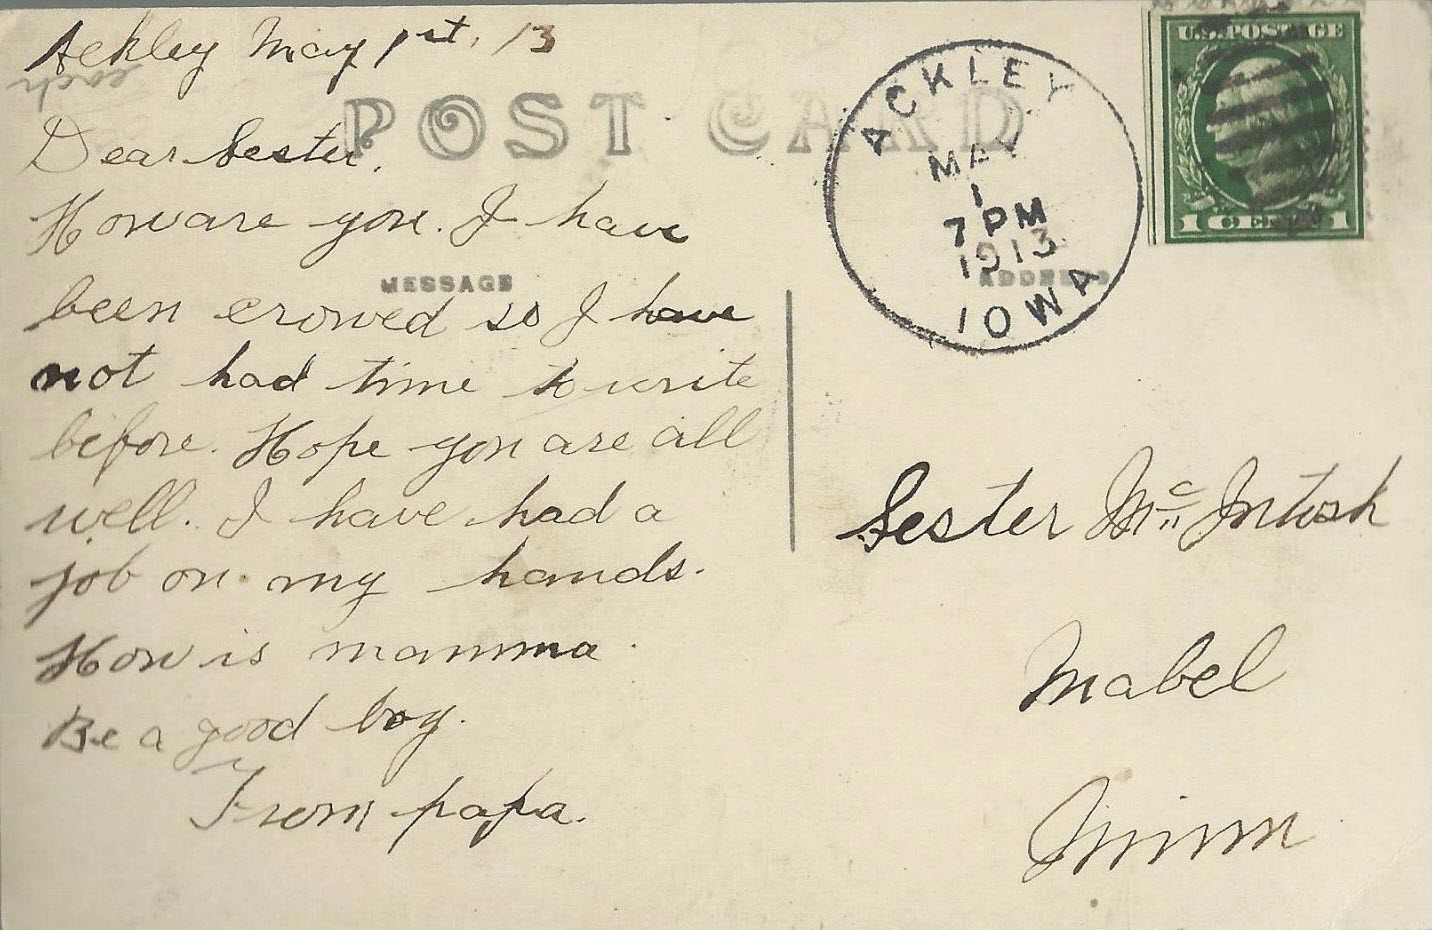 Ackley May 1st, 13
each
POST CARD
Dear Sester,
How are you. I have
MESSAGE
been crowed so I have
not had time to write
before. Hope you are all
well. I have had a
job on my hands.
How is mamma.
Be a good boy.
From papa.
ACKLEY
MAY
1
7 PM
1913
IOWA
ADDRESS
U.S. POSTAGE
1 CENT 1
Sester Mc Intosh
Mabel
Minn